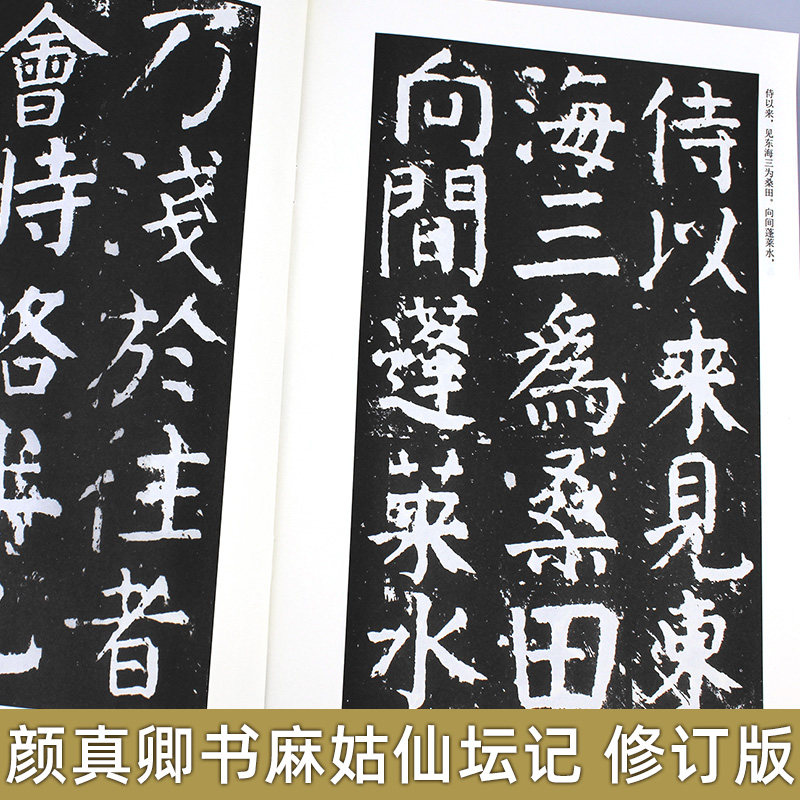 侍以来，见东海三为桑田。向间蓬莱水，
侍以来見東
海三爲桑田
向間蓬萊水
乃淺於往者
會時略半也
颜真卿书麻姑仙坛记 修订版